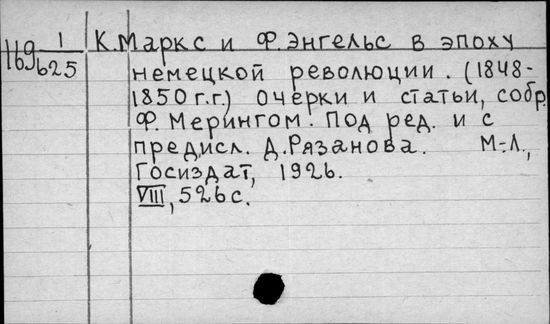 169 1/625
К. Маркс и Ф. Энгельс в эпоху
немецкой революции. (1848-
1850 г.г.) Очерки и статьи, собр.
Ф. Мерингом. Под ред. и с
предисл. Д. Рязанова. М.-Л.,
Госиздат, 1926.
VIII, 526 с.